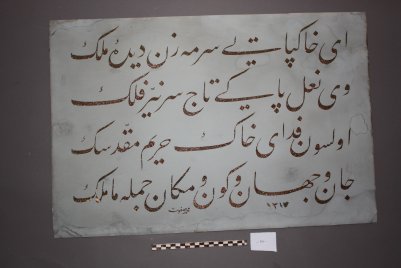 ای خاکپایت سرمه زن دیدهٔ ملک
وی نعل پایکے تاج سر نیّر فلک
اولسون فدای خاک حریم مقدسک
جان و جهان و کون و مکان جمله ما ملک
١٣١٤